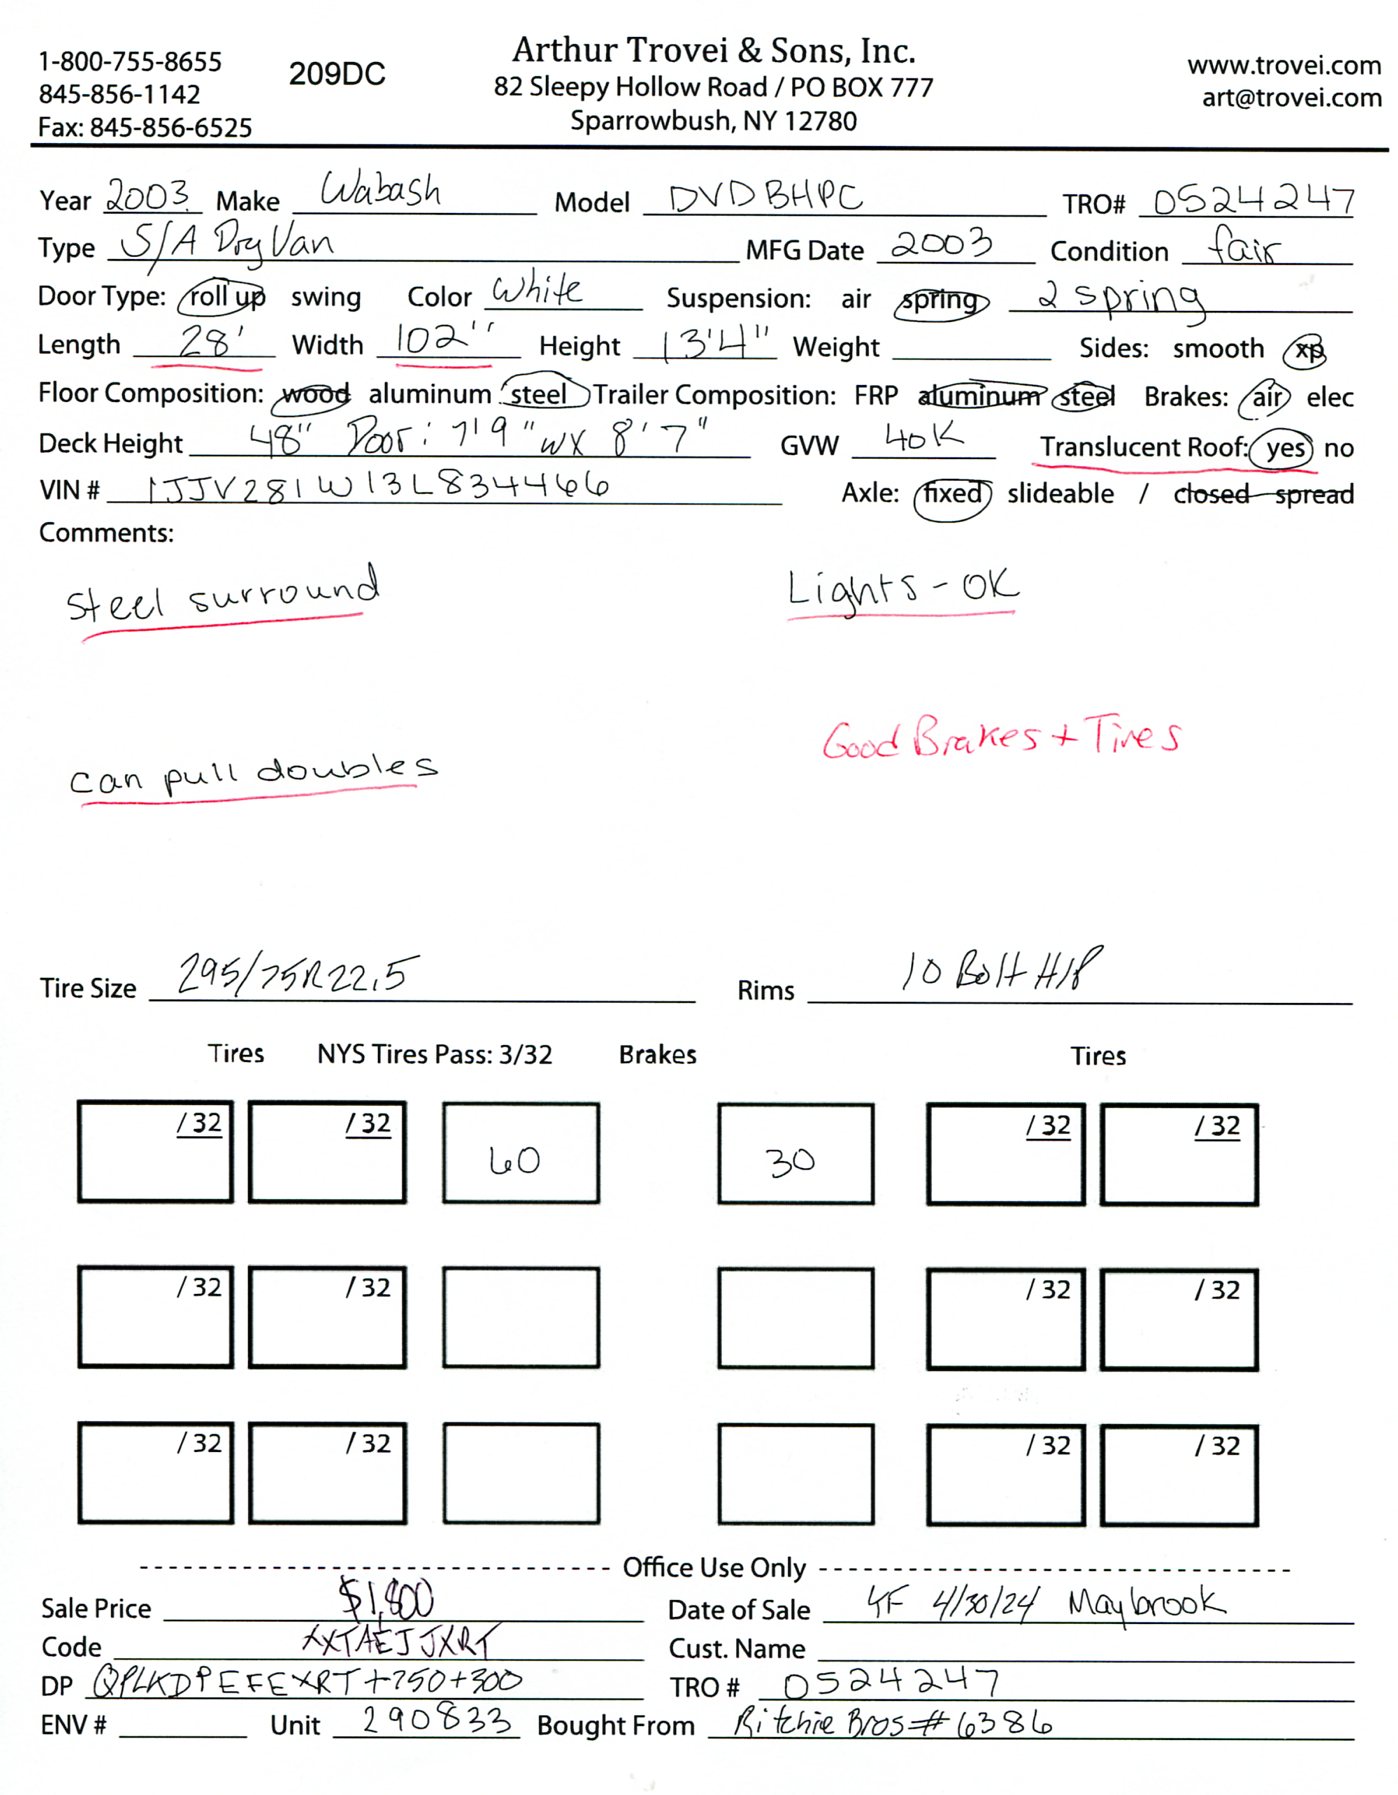 1-800-755-8655
845-856-1142
Fax: 845-856-6525
209DC
Arthur Trovei & Sons, Inc.
82 Sleepy Hollow Road / PO BOX 777
Sparrowbush, NY 12780
www.trovei.com
art@trovei.com
Year 2003 Make Wabash Model DVDBHPC TRO# 0524247
Type S/A Dry Van MFG Date 2003 Condition fair
Door Type: roll up swing Color White Suspension: air spring 2 spring
Length 28' Width 102'' Height 13'4" Weight Sides: smooth xp
Floor Composition: wood aluminum steel Trailer Composition: FRP aluminum steel Brakes: air elec
Deck Height 48" Door: 7'9"w x 8'7" GVW 40K Translucent Roof: yes no
VIN # 1JJV281W13L834466 Axle: fixed slideable / closed spread
Comments:
Steel surround Lights - OK
Good Brakes + Tires
can pull doubles
Tire Size 295/75R22.5 Rims 10 Bolt H/P
Tires NYS Tires Pass: 3/32 Brakes Tires
/32 /32 60 30 /32 /32
/32 /32 /32 /32
/32 /32 /32 /32
Office Use Only
Sale Price $1,800 Date of Sale YF 4/30/24 Maybrook
Code XXTAEJJXRT Cust. Name
DP QPLKDPEFEXRT+750+300 TRO # 0524247
ENV # Unit 290833 Bought From Ritchie Bros # 6386